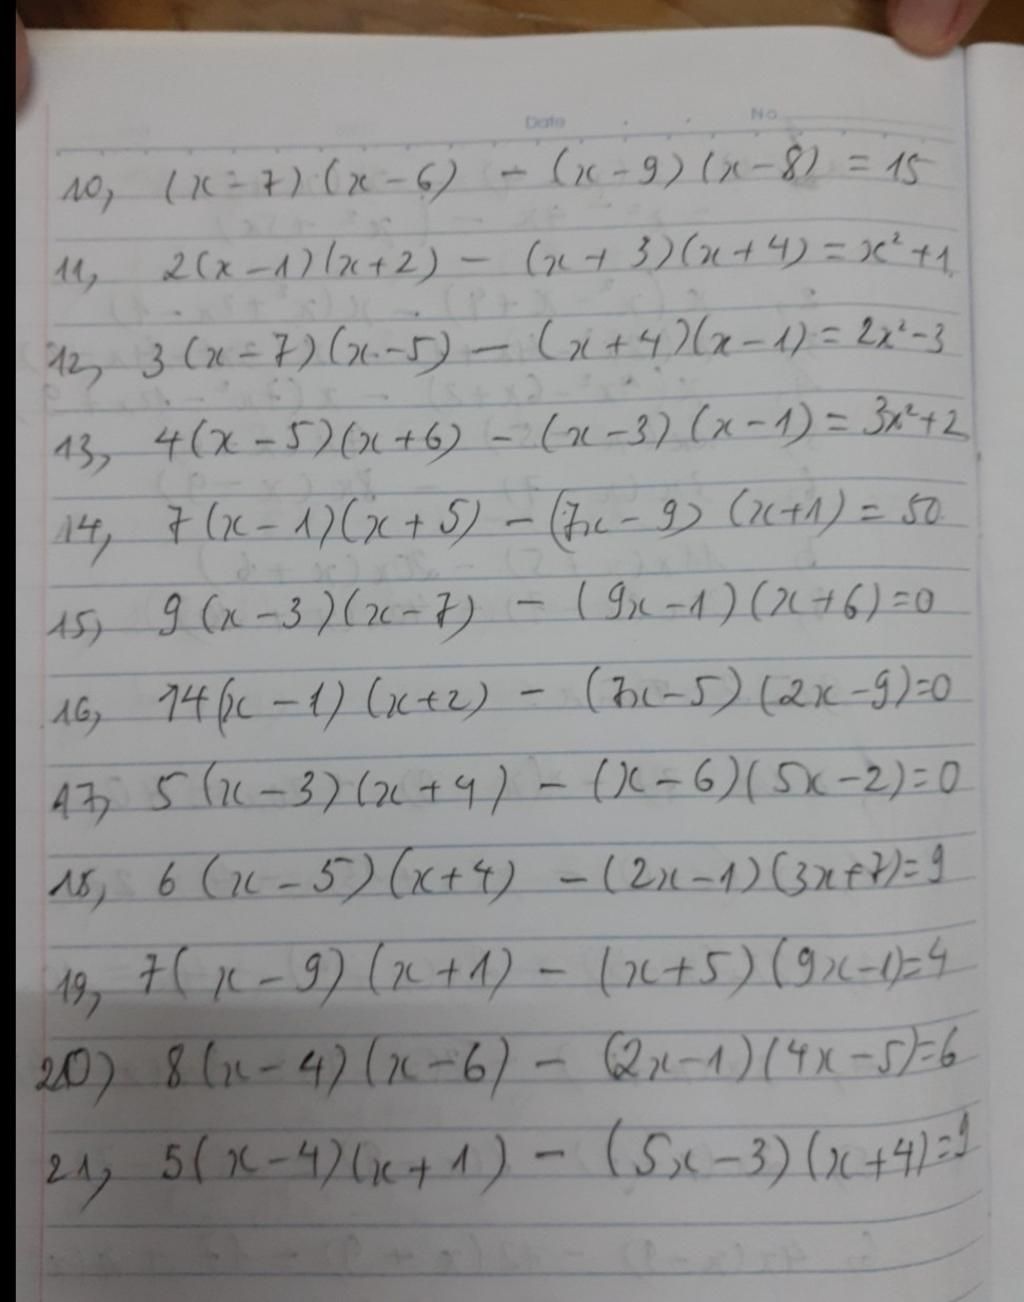 Date No
10, (x-7)(x-6) - (x-9)(x-8) = 15
11, 2(x-1)(x+2) - (x+3)(x+4) = x²+1
12, 3(x-7)(x-5) - (x+4)(x-1) = 2x²-3
13, 4(x-5)(x+6) - (x-3)(x-1) = 3x²+2
14, 7(x-1)(x+5) - (7x-9)(x+1) = 50
15, 9(x-3)(x-7) - (9x-1)(x+6)=0
16, 14(x-1)(x+2) - (7x-5)(2x-9)=0
17, 5(x-3)(x+4) - (x-6)(5x-2)=0
18, 6(x-5)(x+4) - (2x-1)(3x+7)=9
19, 7(x-9)(x+1) - (x+5)(9x-1)=4
20) 8(x-4)(x-6) - (2x-1)(4x-5)=6
21, 5(x-4)(x+1) - (5x-3)(x+4)=